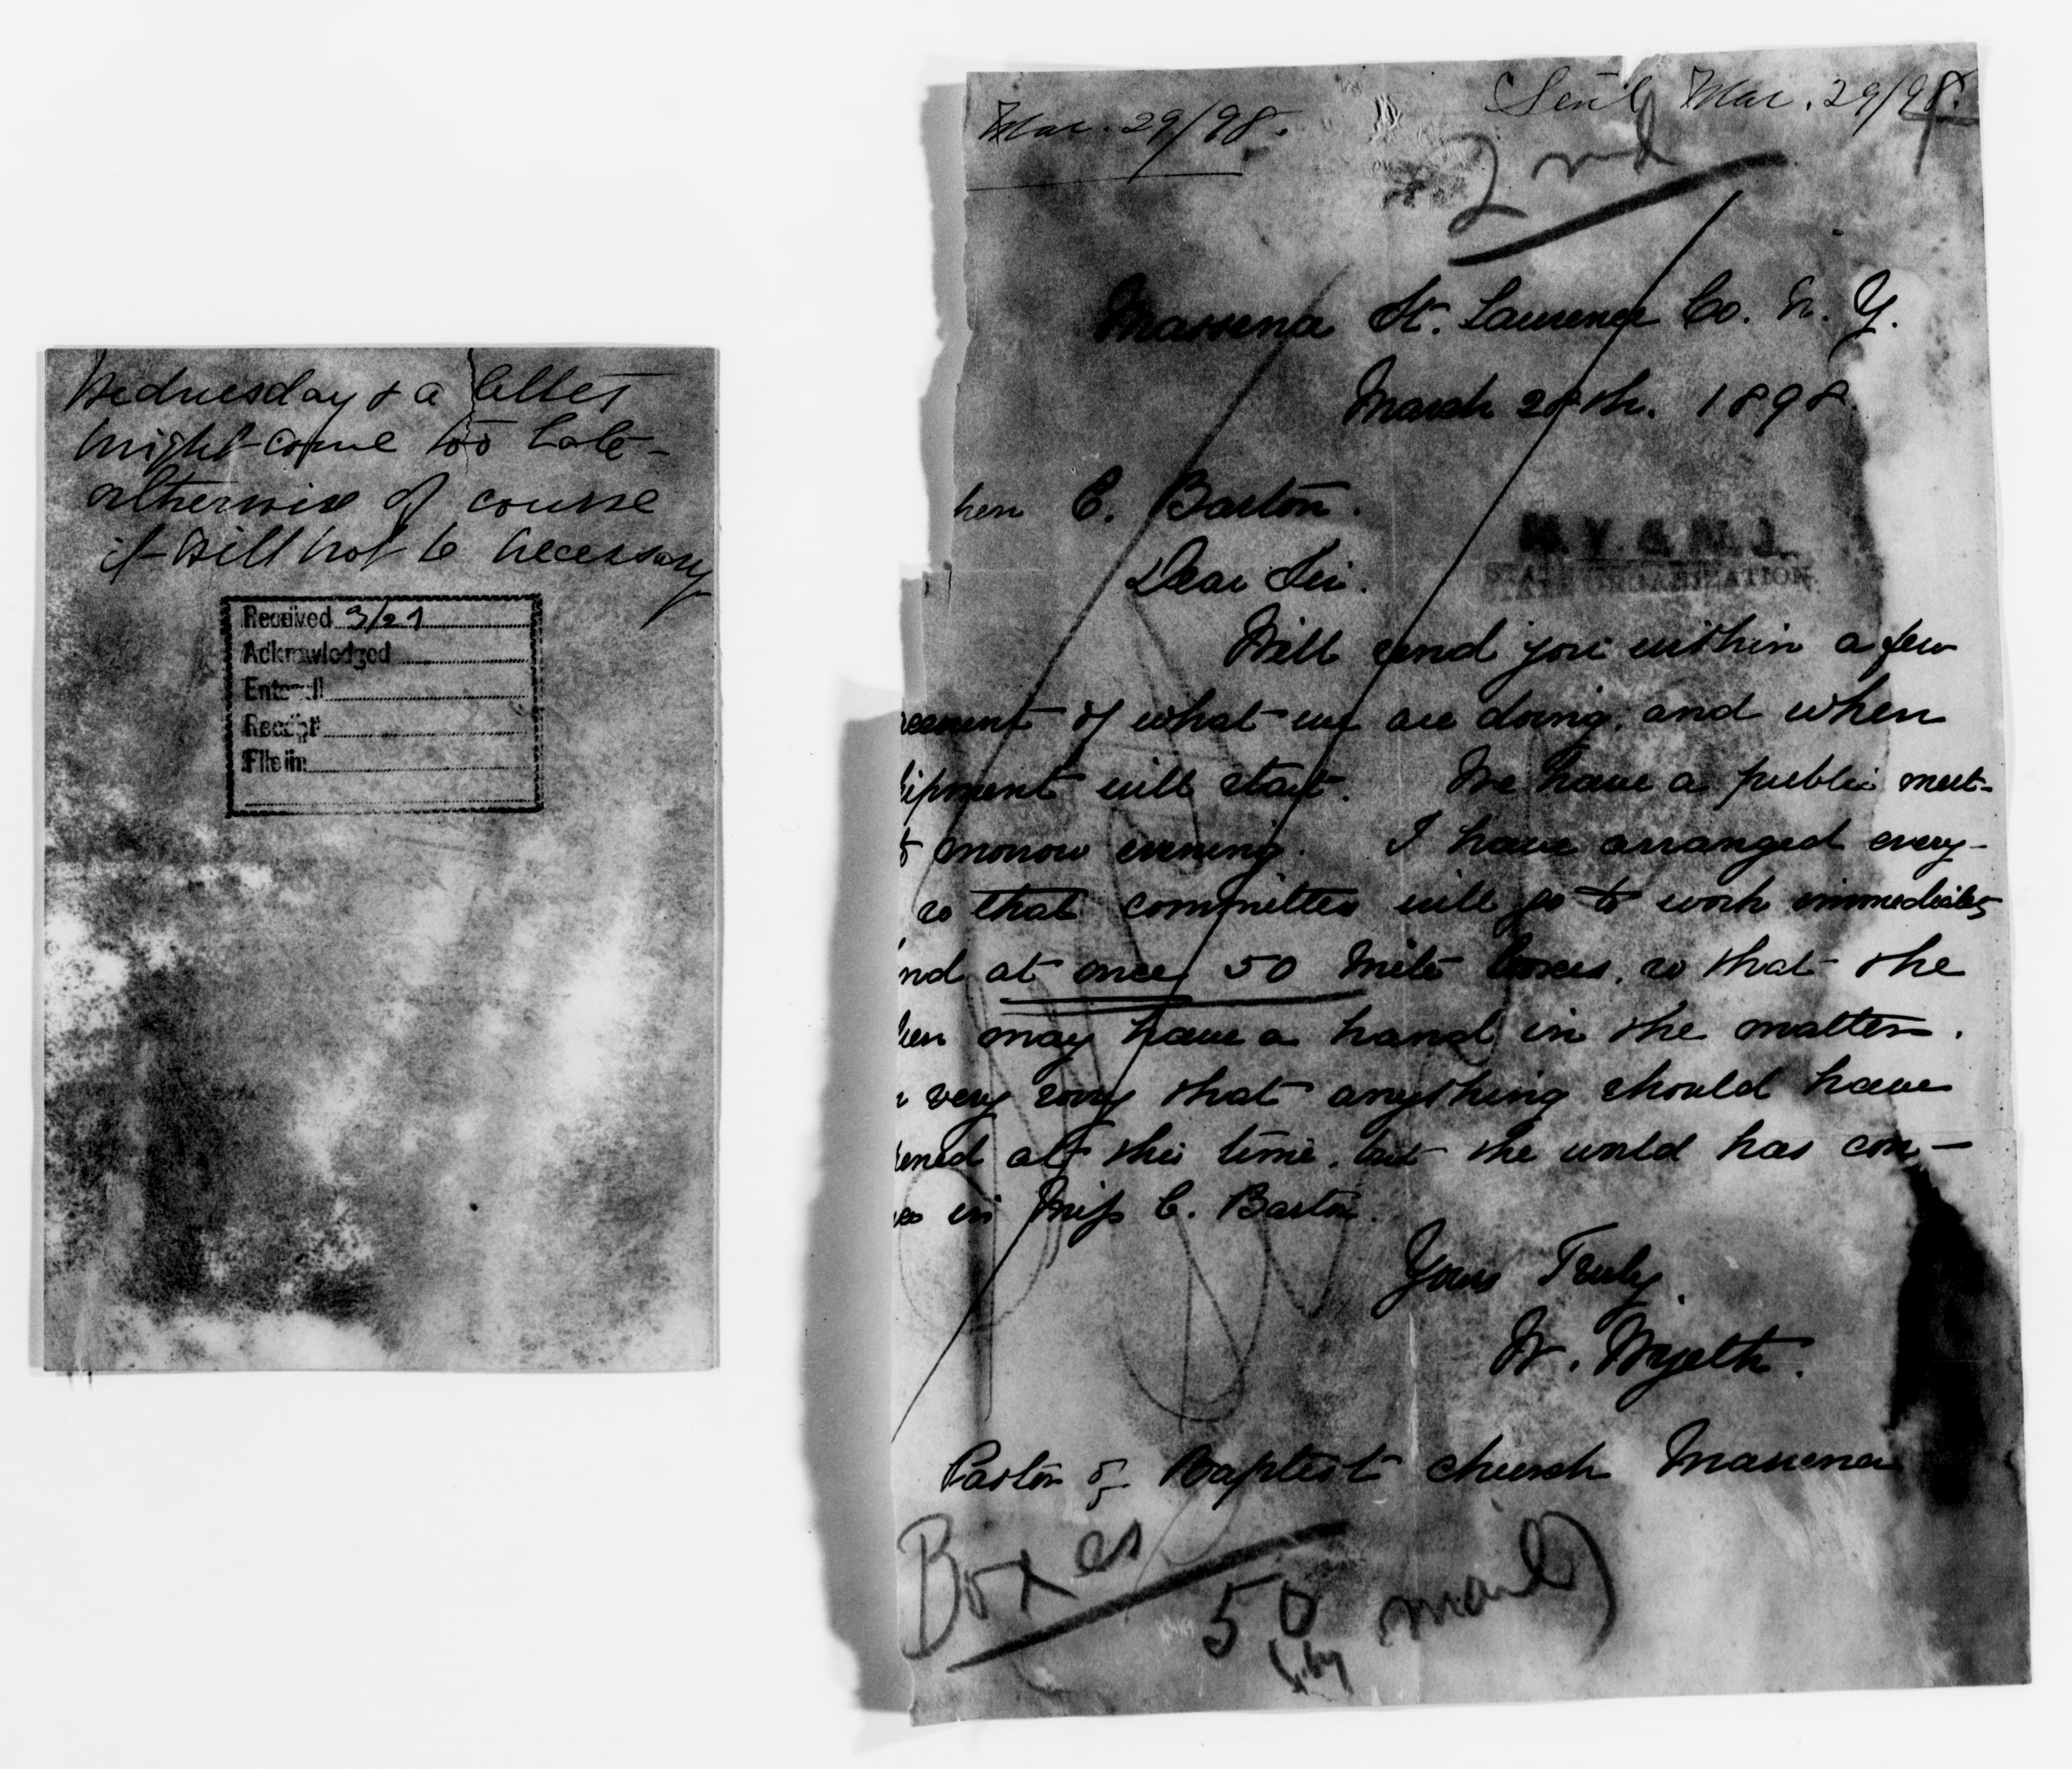 Wednesday & a letter
might come too late -
otherwise of course
it will not be necessary
Received 3/21
Acknowledged
Entered
Receipt
File in
Mar. 29/98.
Sent Mar. 29/98.
2nd
Massena St. Lawrence Co. N. Y.
March 28th. 1898.
hen E. Barton.
Dear Sir.
STATE ORGANIZATION
Will send you within a few
of what we are doing, and when
ipment will start. We have a public meet-
morrow evening. I have arranged every-
so that committee will go to work immediately
nd at once 50 Mite boxes, so that the
en may have a hand in the matter.
very sorry that anything should have
ened at this time, but the world has con-
in Miss C. Barton.
Yours Truly
W. Wyeth.
Pastor of Baptist church Massena
Boxes
50
by mail)